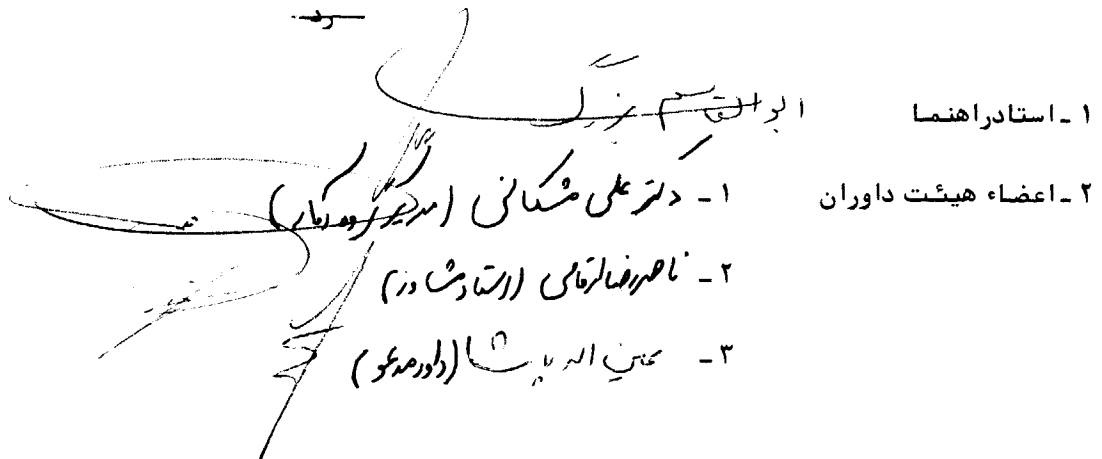 ۱ ـ استادراهنما ابوالقاسم بزرگ
۲ ـ اعضاء هیئت داوران ۱ ـ دکتر علی مشکانی (مدیر گروه آمار)
۲ ـ ناصررضا ارقامی (استاد مشاور)
۳ ـ عین اله پاشا (داور مدعو)